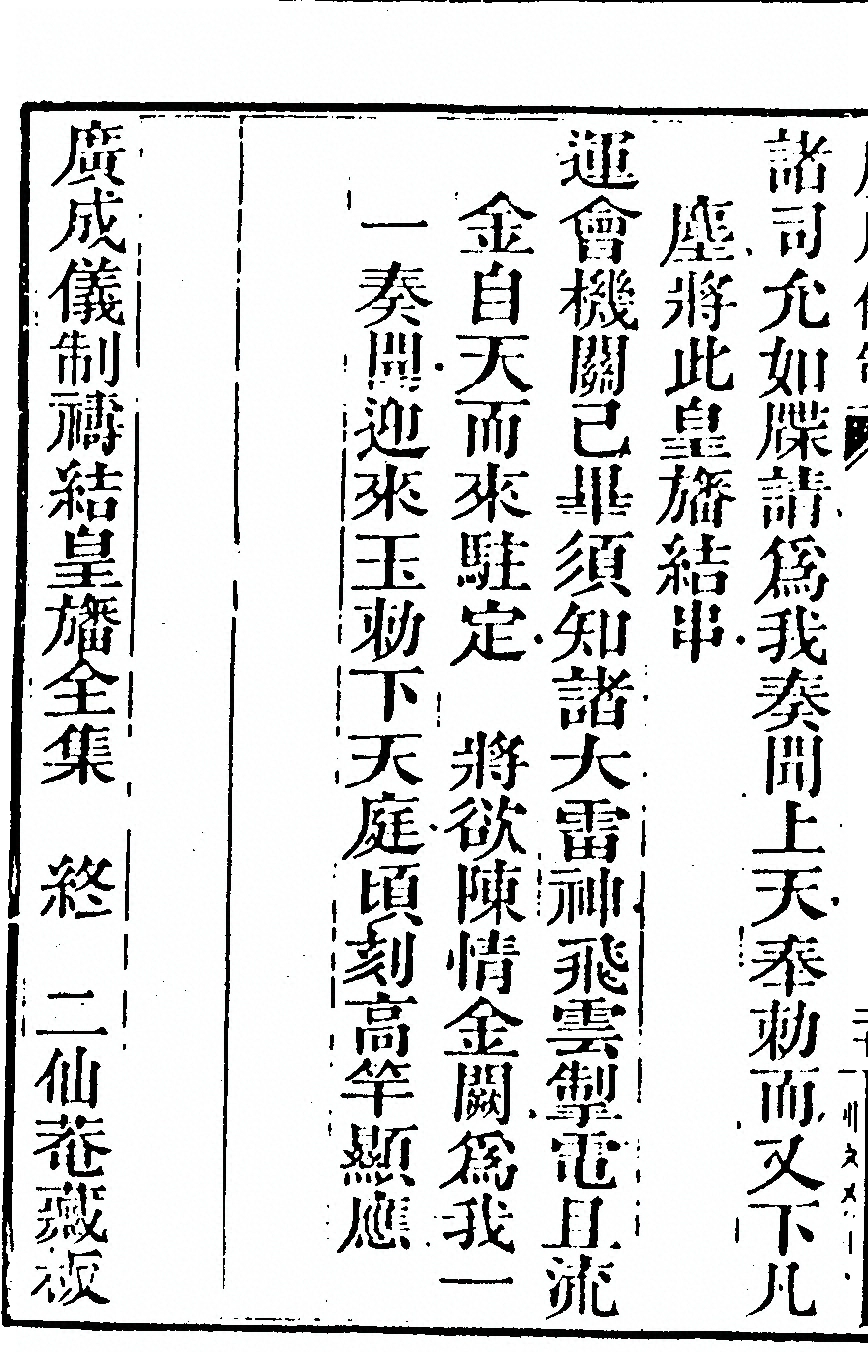 諸司允如牒請為我奏聞上天奉勅而又下凡
塵將此皇旛結串
運會機關已畢須知諸大雷神飛雲掣電且流
金自天而來駐定　將欲陳情金闕為我一
一奏聞迎來玉勅下天庭頃刻高竿顯應
廣成儀制禱結皇旛全集　終　二仙菴藏板